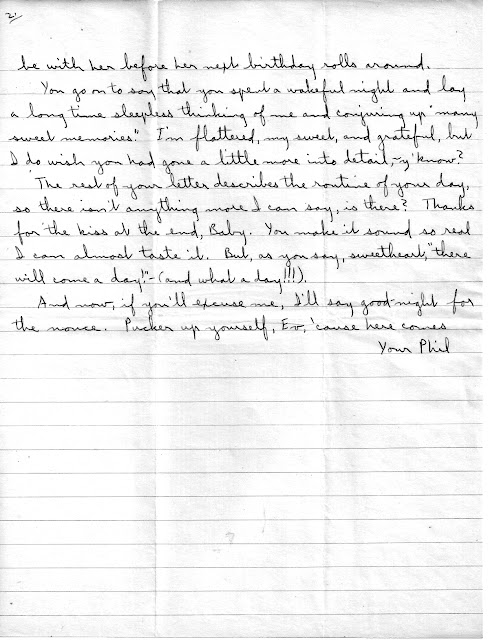 2.
be with her before her next birthday rolls around.
You go on to say that you spent a wakeful night and lay
a long time sleepless thinking of me and conjuring up "many
sweet memories." I'm flattered, my sweet, and grateful, but
I do wish you had gone a little more into detail, - y'know?
The rest of your letter describes the routine of your day,
so there isn't anything more I can say, is there? Thanks
for the kiss at the end, Baby. You make it sound so real
I can almost taste it. But, as you say, sweetheart, "there
will come a day!" - (and what a day!!!).
And now, if you'll excuse me, I'll say good-night for
the nonce. Pucker up yourself, Ev, 'cause here comes
Your Phil